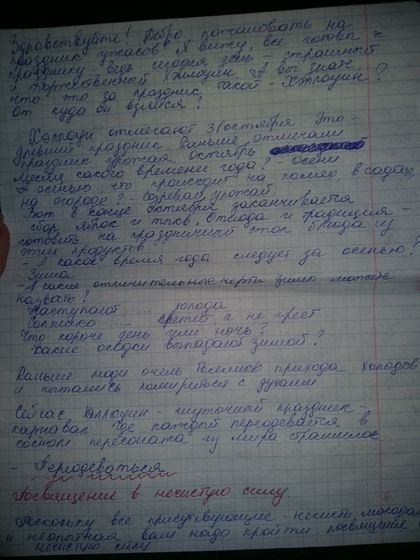 Здравствуйте! Добро пожаловать на
праздник ужасов. Я вижу, все готовы к
празднику - ведь сегодня день - страшный
и торжественный Хэллоуин. А вы знаете,
что это за праздник такой - Хэллоуин?
От куда он взялся?
Хэллоуин отмечают 31 октября. Это
древний праздник. Раньше отмечали
праздник урожая. Октябрь
месяц какого времени года? - осени
- А осенью, что происходит на полях, в садах,
на огороде? - Созревает урожай
- Вот в конце октября заканчивается
сбор яблок и тыкв. Отсюда и традиция -
готовить на праздничный стол блюда из
этих продуктов
- А какое время года следует за осенью?
- Зима
- А какие отличительные черты зимы можете
назвать?
Наступают ... холода
Солнышко ... светит, а не греет
Что короче день или ночь?
Какие осадки выпадают зимой?
Раньше люди очень боялись прихода холодов
и пытались помириться с духами
Сейчас, Хэллоуин - шуточный праздник -
карнавал, где каждый переодевается в
костюм персонажа из мира страшилок
- Переодеваться
Посвящение в нечистую силу.
Поскольку все присутствующие - нечисть молодая
и неопытная вам надо пройти посвящение
нечистую силу